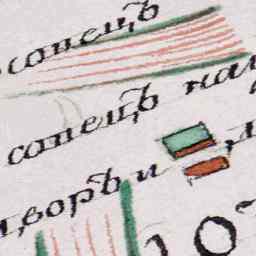 сапецъ
сапецъ на
дворъ и
10